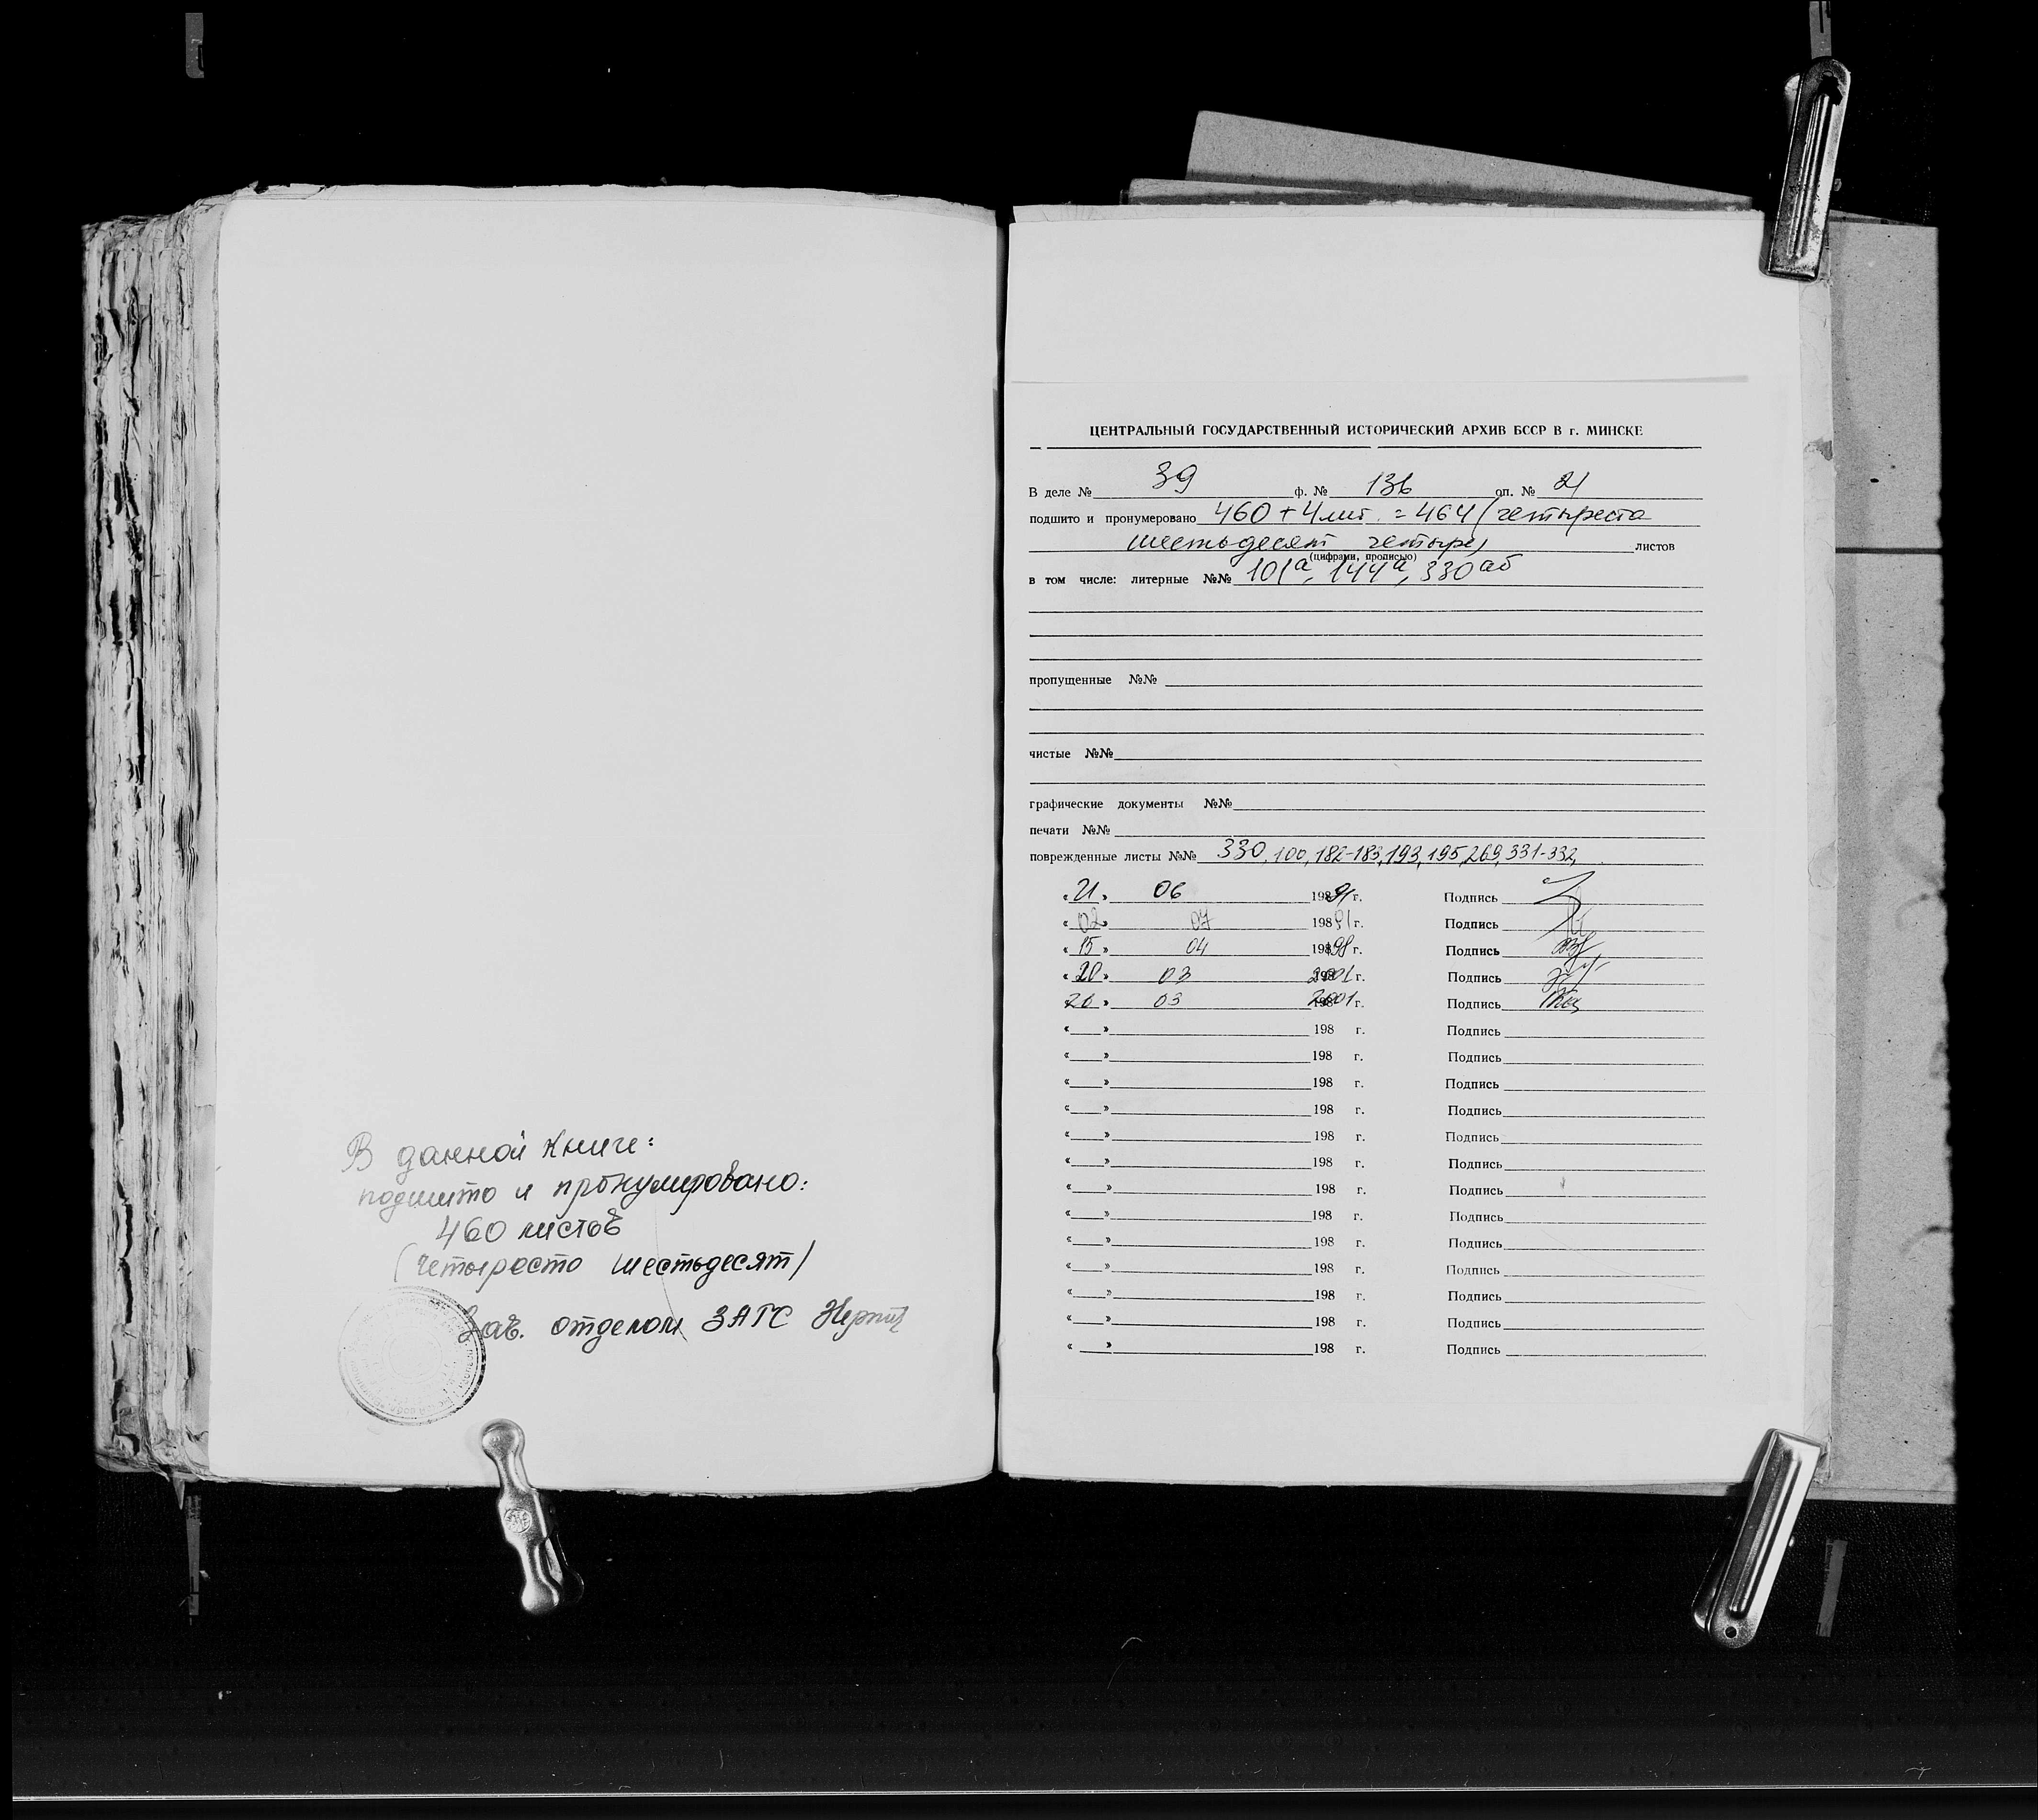 В данной книге:
подшито и пронумеровано:
460 листов
(четыресто шестьдесят)
Зав. отделом ЗАГС
ЦЕНТРАЛЬНЫЙ ГОСУДАРСТВЕННЫЙ ИСТОРИЧЕСКИЙ АРХИВ БССР В г. МИНСКЕ
В деле № 39 ф. № 136 оп. № 21
подшито и пронумеровано 460 + 4 лит. = 464 (четыреста
шестьдесят четыре) листов
(цифрами, прописью)
в том числе: литерные №№ 101а, 144а, 330аб
пропущенные №№
чистые №№
графические документы №№
печати №№
поврежденные листы №№ 330, 100, 182-183, 193, 195, 269, 331-332,
« 21 » 06 1991 г. Подпись
« 02 » 07 1991 г. Подпись
« 15 » 04 1998 г. Подпись
« 20 » 03 2001 г. Подпись
« 20 » 03 2001 г. Подпись
« » 198 г. Подпись
« » 198 г. Подпись
« » 198 г. Подпись
« » 198 г. Подпись
« » 198 г. Подпись
« » 198 г. Подпись
« » 198 г. Подпись
« » 198 г. Подпись
« » 198 г. Подпись
« » 198 г. Подпись
« » 198 г. Подпись
« » 198 г. Подпись
« » 198 г. Подпись